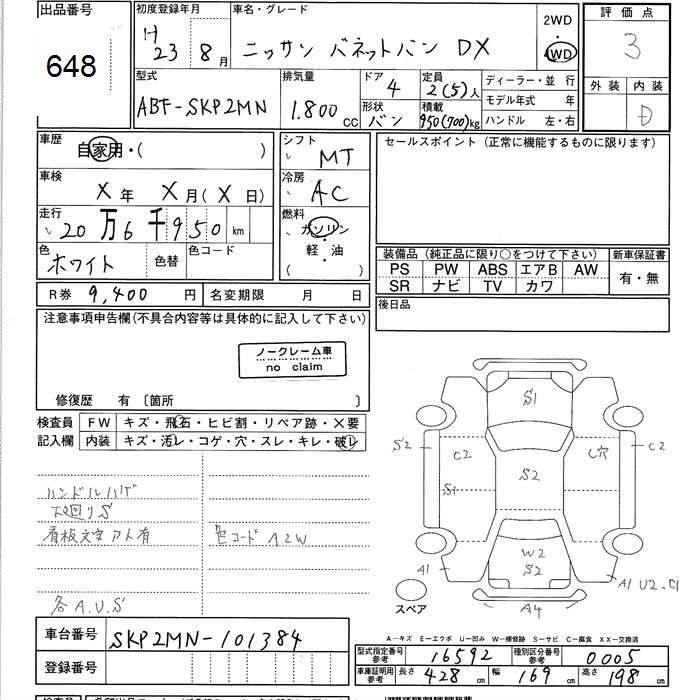 出品番号
648
初度登録年月
H23 8月
車名・グレード
ニッサン バネットバン DX
2WD
・
4WD
評価点
3
外装 内装
D
型式
ABF-SKP2MN
排気量
1.800 CC
ドア
4
形状
バン
定員
2(5)人
積載
950(700)kg
ディーラー・並 行
モデル年式 年
ハンドル 左・右
車歴
自家用・( )
シフト
MT
セールスポイント (正常に機能するものに限ります)
車検
X年 X月(X日)
冷房
AC
走行
20万6千950 km
燃料
ガソリン
・
軽・油
( )
色
ホワイト
色替
色コード
装備品 (純正品に限り○をつけて下さい) 新車保証書
PS PW ABS エアB AW
SR ナビ TV カワ
有・無
R券 9,400円
名変期限 月 日
後日品
注意事項申告欄(不具合内容等は具体的に記入して下さい)
ノークレーム車
no claim
修復歴 有 〔箇所 〕
検査員
記入欄
FW キズ・飛石・ヒビ割・リペア跡・×要
内装 キズ・汚レ・コゲ・穴・スレ・キレ・破レ
ハンドルハゲ
下廻りS
看板文字アト有
色コード A2W
各A.U.S
S1
S2 C2 C穴 C2
S1 S2
W2
S2
A1 A1 U2.S1
A4
スペア
A―キズ E―エクボ U―凹み W―補修跡 S―サビ C―腐食 XX―交換済
車台番号
SKP2MN-101384
登録番号
型式指定番号
参考
16592
種別区分番号
参考
0005
車庫証明用
参考
長さ 428 cm
幅 169 cm
高さ 198 cm